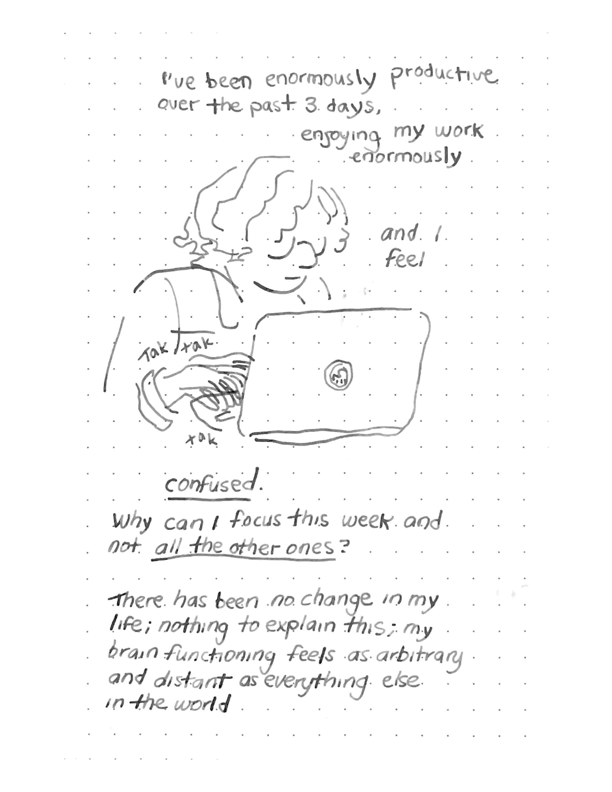 I've been enormously productive
over the past 3 days,
enjoying my work
enormously
and I
feel
Tak tak
tak
confused.
Why can I focus this week and
not all the other ones?
There has been no change in my
life; nothing to explain this; my
brain functioning feels as arbitrary
and distant as everything else
in the world